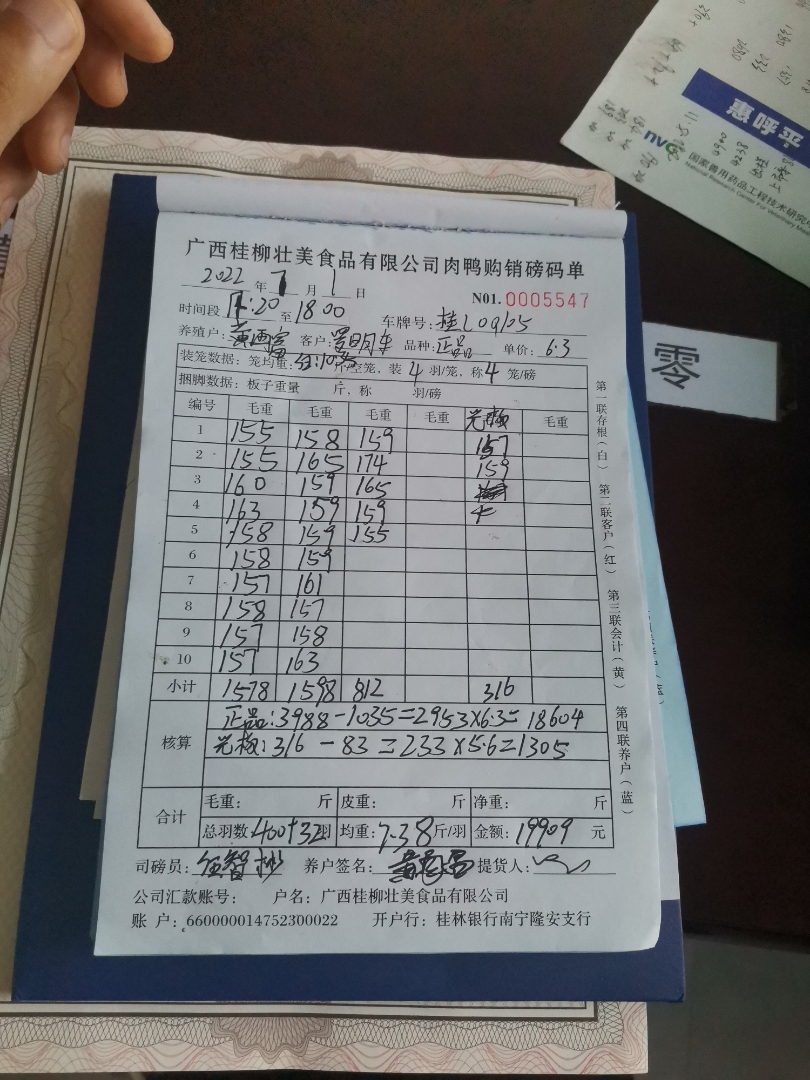 广西桂柳壮美食品有限公司肉鸭购销磅码单
2022年7月1日
N01.0005547
时间段 :20至1800 车牌号:桂L09105
养殖户: 客户: 品种:正品 单价:6.3
装笼数据:笼均重: 斤/空笼,装4羽/笼,称4笼/磅
捆脚数据:板子重量 斤,称 羽/磅
编号 毛重 毛重 毛重 毛重 毛重
1 155 158 159 157
2 155 165 174 159
3 160 159 165
4 163 159 159
5 158 159 155
6 158 159
7 157 161
8 158 157
9 157 158
10 157 163
小计 1578 1598 812 316
核算
正品:3988-1035=2953×6.3=18604
:316-83=233×5.6=1305
合计
毛重: 斤 皮重: 斤 净重: 斤
总羽数:400+32羽 均重:7.38斤/羽 金额:19909元
司磅员: 养户签名: 提货人:
公司汇款账号: 户名:广西桂柳壮美食品有限公司
账 户:660000014752300022 开户行:桂林银行南宁隆安支行
第一联存根(白) 第二联客户(红) 第三联会计(黄) 第四联养户(蓝)
零
惠呼平
nvc
国家兽用药品工程技术研究
National Research Center For Veterinary Med